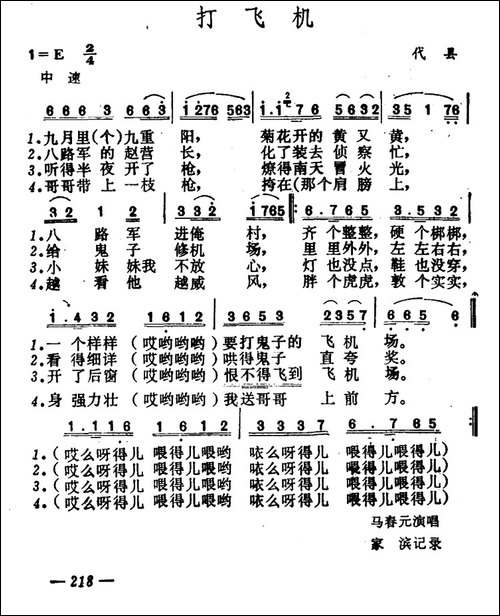 打飞机
1=E 2/4
代县
中速
6 6 6 3 6 6 3 i 2 7 6 5 6 3 i. i 2 7 6 5 6 3 2 3 5 1 7 6
1.九月里(个)九重 阳, 菊花开的黄又黄,
2.八路军的赵营 长, 化了装去侦察忙,
3.听得半夜开了 枪, 燎得南天冒火光,
4.哥哥带上一枝 枪, 挎在(那个肩膀上,
3 2 1 2 3 2 2 3 i 7 6 5 6. 7 6 5 3. 2 3 5
1.八路军进俺村, 齐个整整,硬个梆梆,
2.给鬼子修机场, 里里外外,左左右右,
3.小妹妹我不放心, 灯也没点,鞋也没穿,
4.越看他越威风, 胖个虎虎,敦个实实,
i. 4 3 2 1 2 1 2 3 6 5 3 2 3 5 7 6 6 5. 6
1.一个样样(哎哟哟哟)要打鬼子的飞机场。
2.看得细详(哎哟哟哟)哄得鬼子直夸奖。
3.开了后窗(哎哟哟哟)恨不得飞到飞机场。
4.身强力壮(哎哟哟哟)我送哥哥上前方。
1. 1 1 6 1 6 1 2 3 3 3 7 6. 7 6 5
1.(哎么呀得儿 喂得儿喂哟 咴么呀得儿 喂得儿喂哟)
2.(哎么呀得儿 喂得儿喂哟 咴么呀得儿 喂得儿喂哟)
3.(哎么呀得儿 喂得儿喂哟 咴么呀得儿 喂得儿喂哟)
4.(哎么呀得儿 喂得儿喂哟 咴么呀得儿 喂得儿喂哟)
马春元演唱
家 滨记录
— 218 —